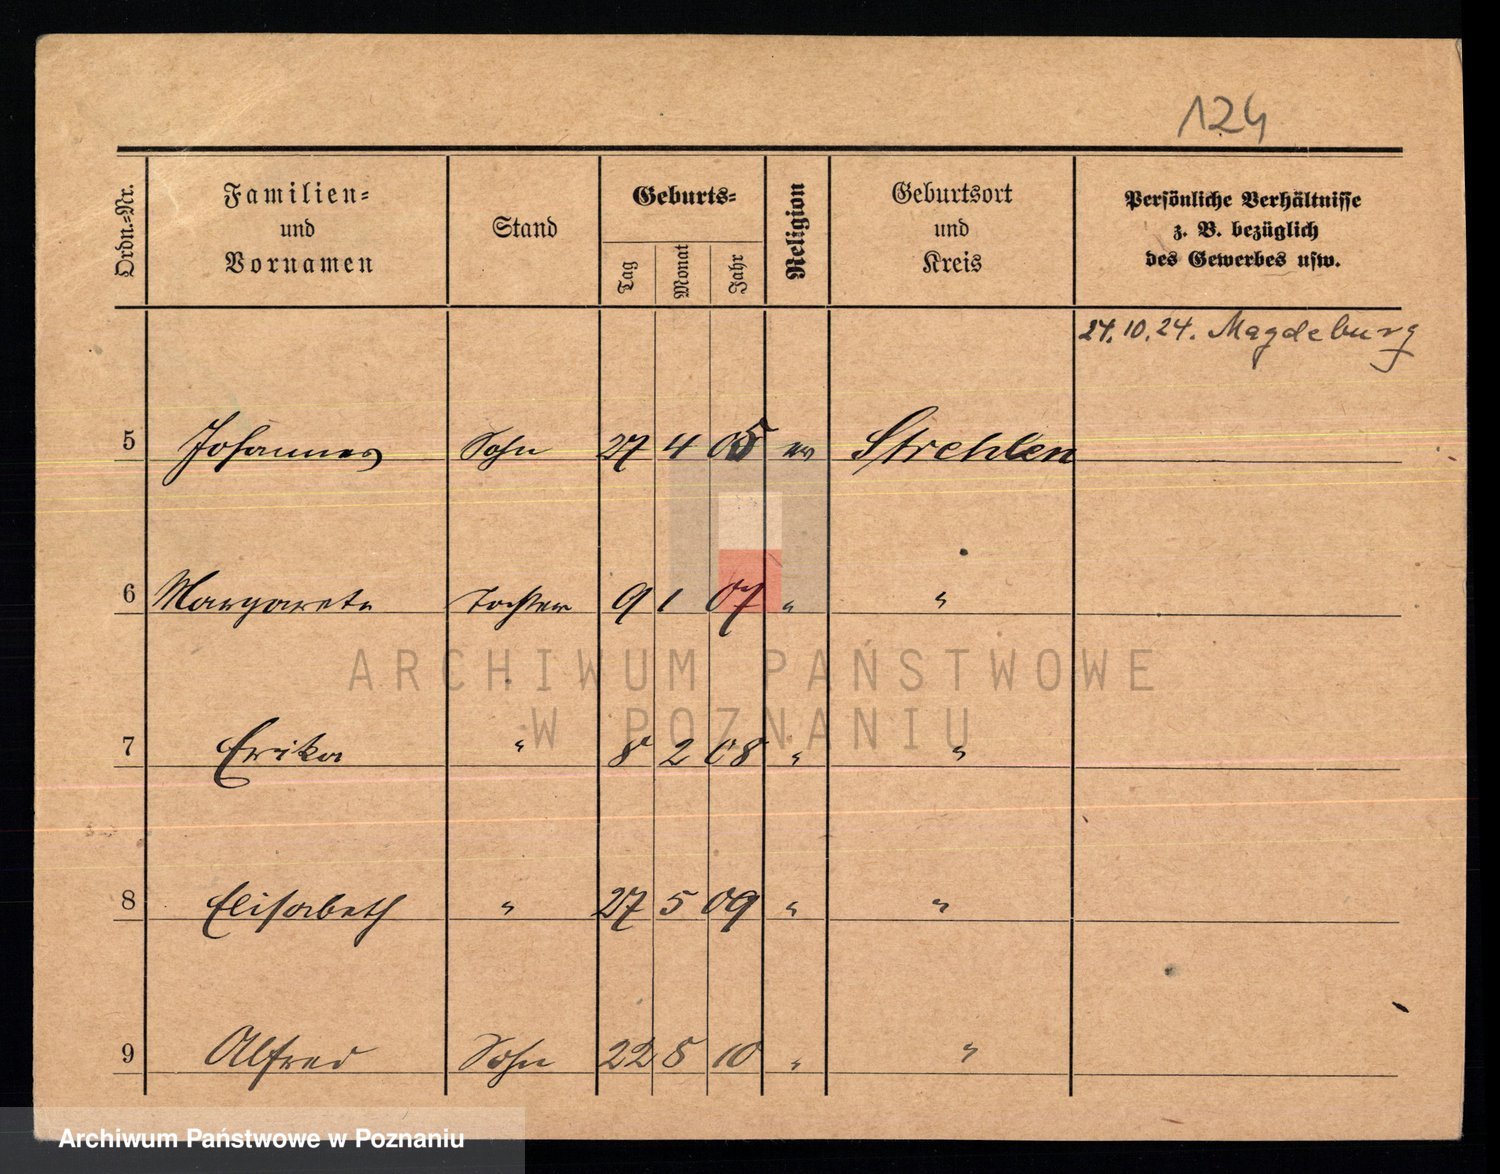 124
Ordn.=Nr.
Familien=
und
Vornamen
Stand
Geburts=
Tag
Monat
Jahr
Religion
Geburtsort
und
Kreis
Persönliche Verhältnisse
z. B. bezüglich
des Gewerbes usw.
24.10.24. Magdeburg
5 Johannes Sohn 27 4 05 ev Strehlen
6 Margarete Tochter 9 1 07 " "
ARCHIWUM PAŃSTWOWE
W POZNANIU
7 Erika " 8 2 08 " "
8 Elisabeth " 27 5 09 " "
9 Alfred Sohn 22 5 10 " "
Archiwum Państwowe w Poznaniu